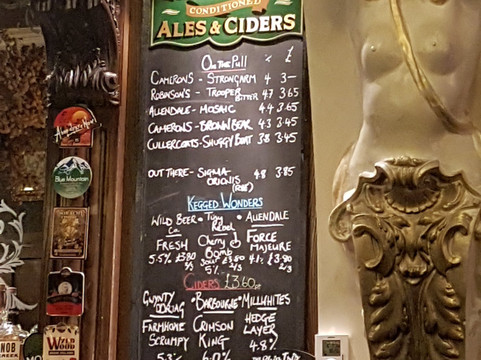 CONDITIONED
ALES & CIDERS
On The Pull % £
CAMERONS - STRONGARM 4 3—
ROBINSON'S - TROOPER BITTER 4.7 3.65
ALLENDALE - MOSAIC 4.4 3.65
CAMERONS - BROWN BEAR 4.3 3.45
CULLERCOATS - SHUGGY BOAT 3.8 3.45
OUT THERE - SIGMA ORIONIS 4.8 3.85
KEGGED WONDERS
WILD BEER Co. • Tiny Rebel • ALLENDALE
FRESH Cherry Bomb FORCE MAJEURE
5.5% £3.80 Sour £3.80 £3.80
5% 2/3 2/3
CIDERS £3.60
• BARBOURNE • MILLWHITES
FARMHOUSE CRIMSON HEDGE
SCRUMPY KING LAYER
4.8%
Blue Mountain
WILD
WOOD